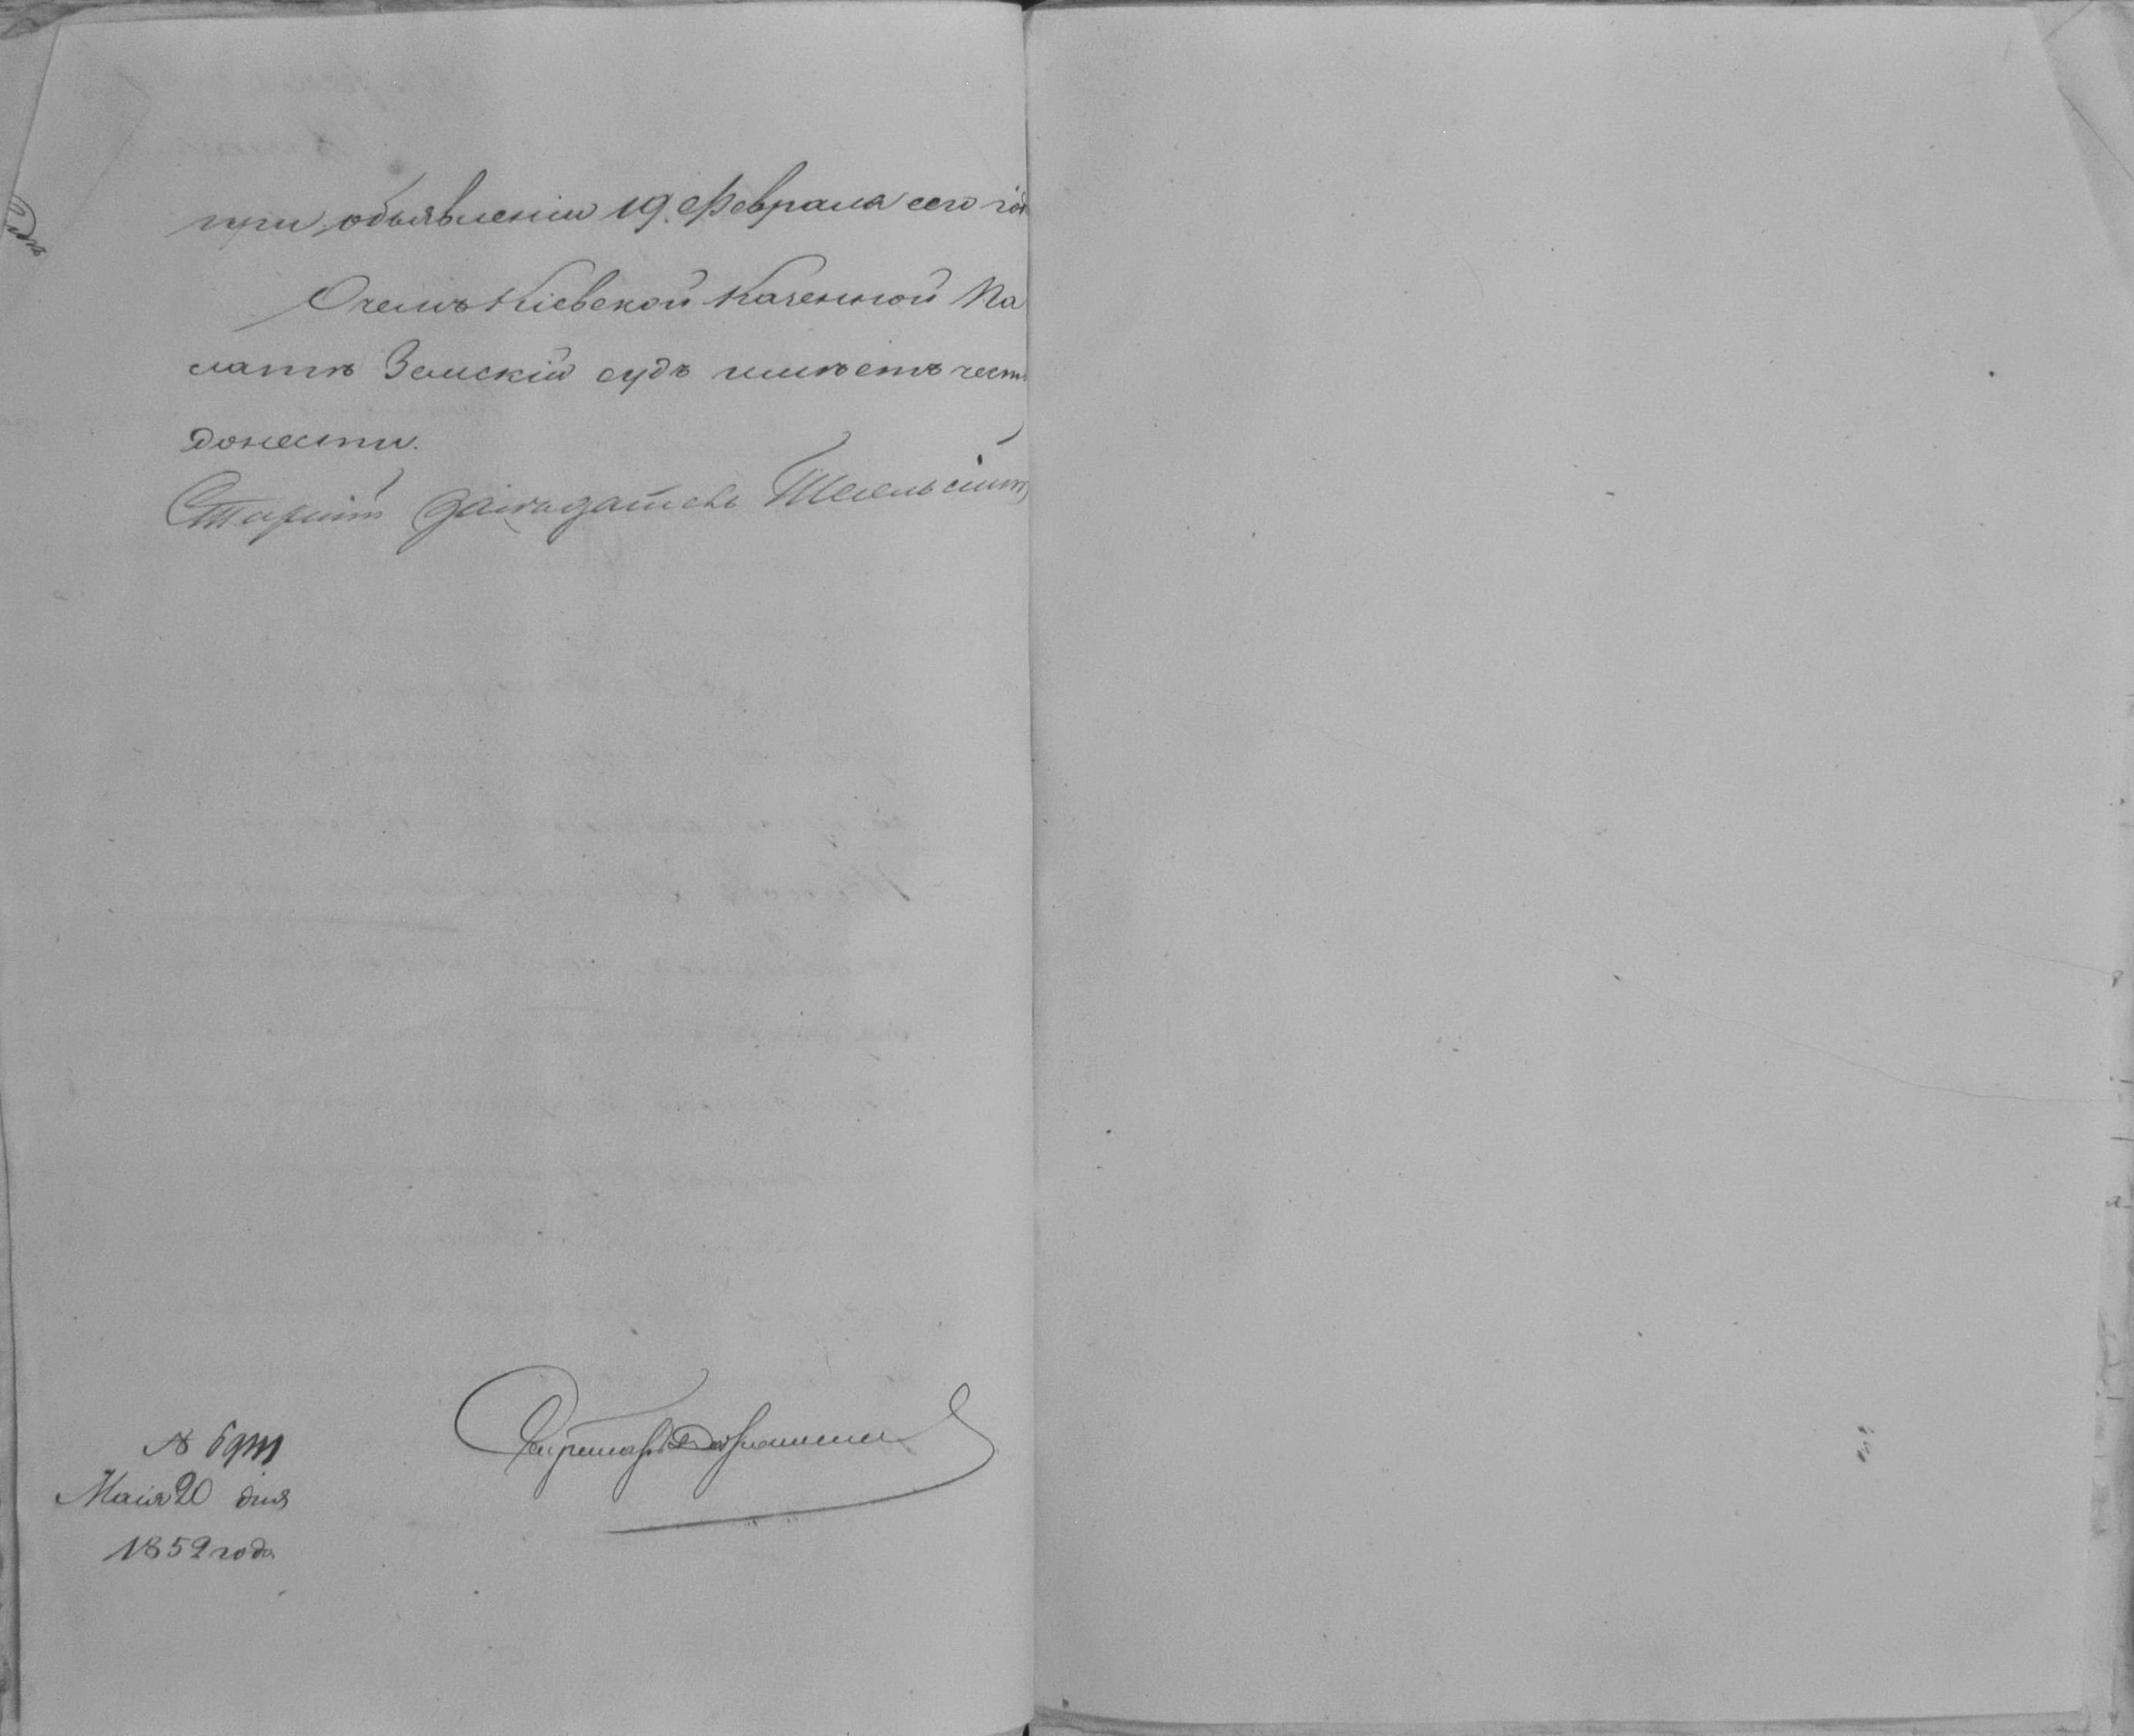 при объявленіи 19. Февраля сего го
О чемъ Кіевской Казенной Па
латѣ Земскій судъ имѣетъ честь
донести.
Старшій Засѣдатель
Секретарь
№
Маія 20 дня
1852 года